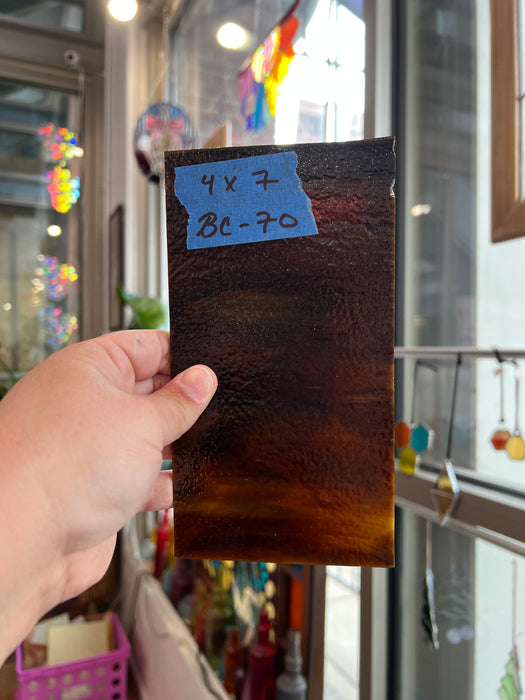 4 x 7
BC-70